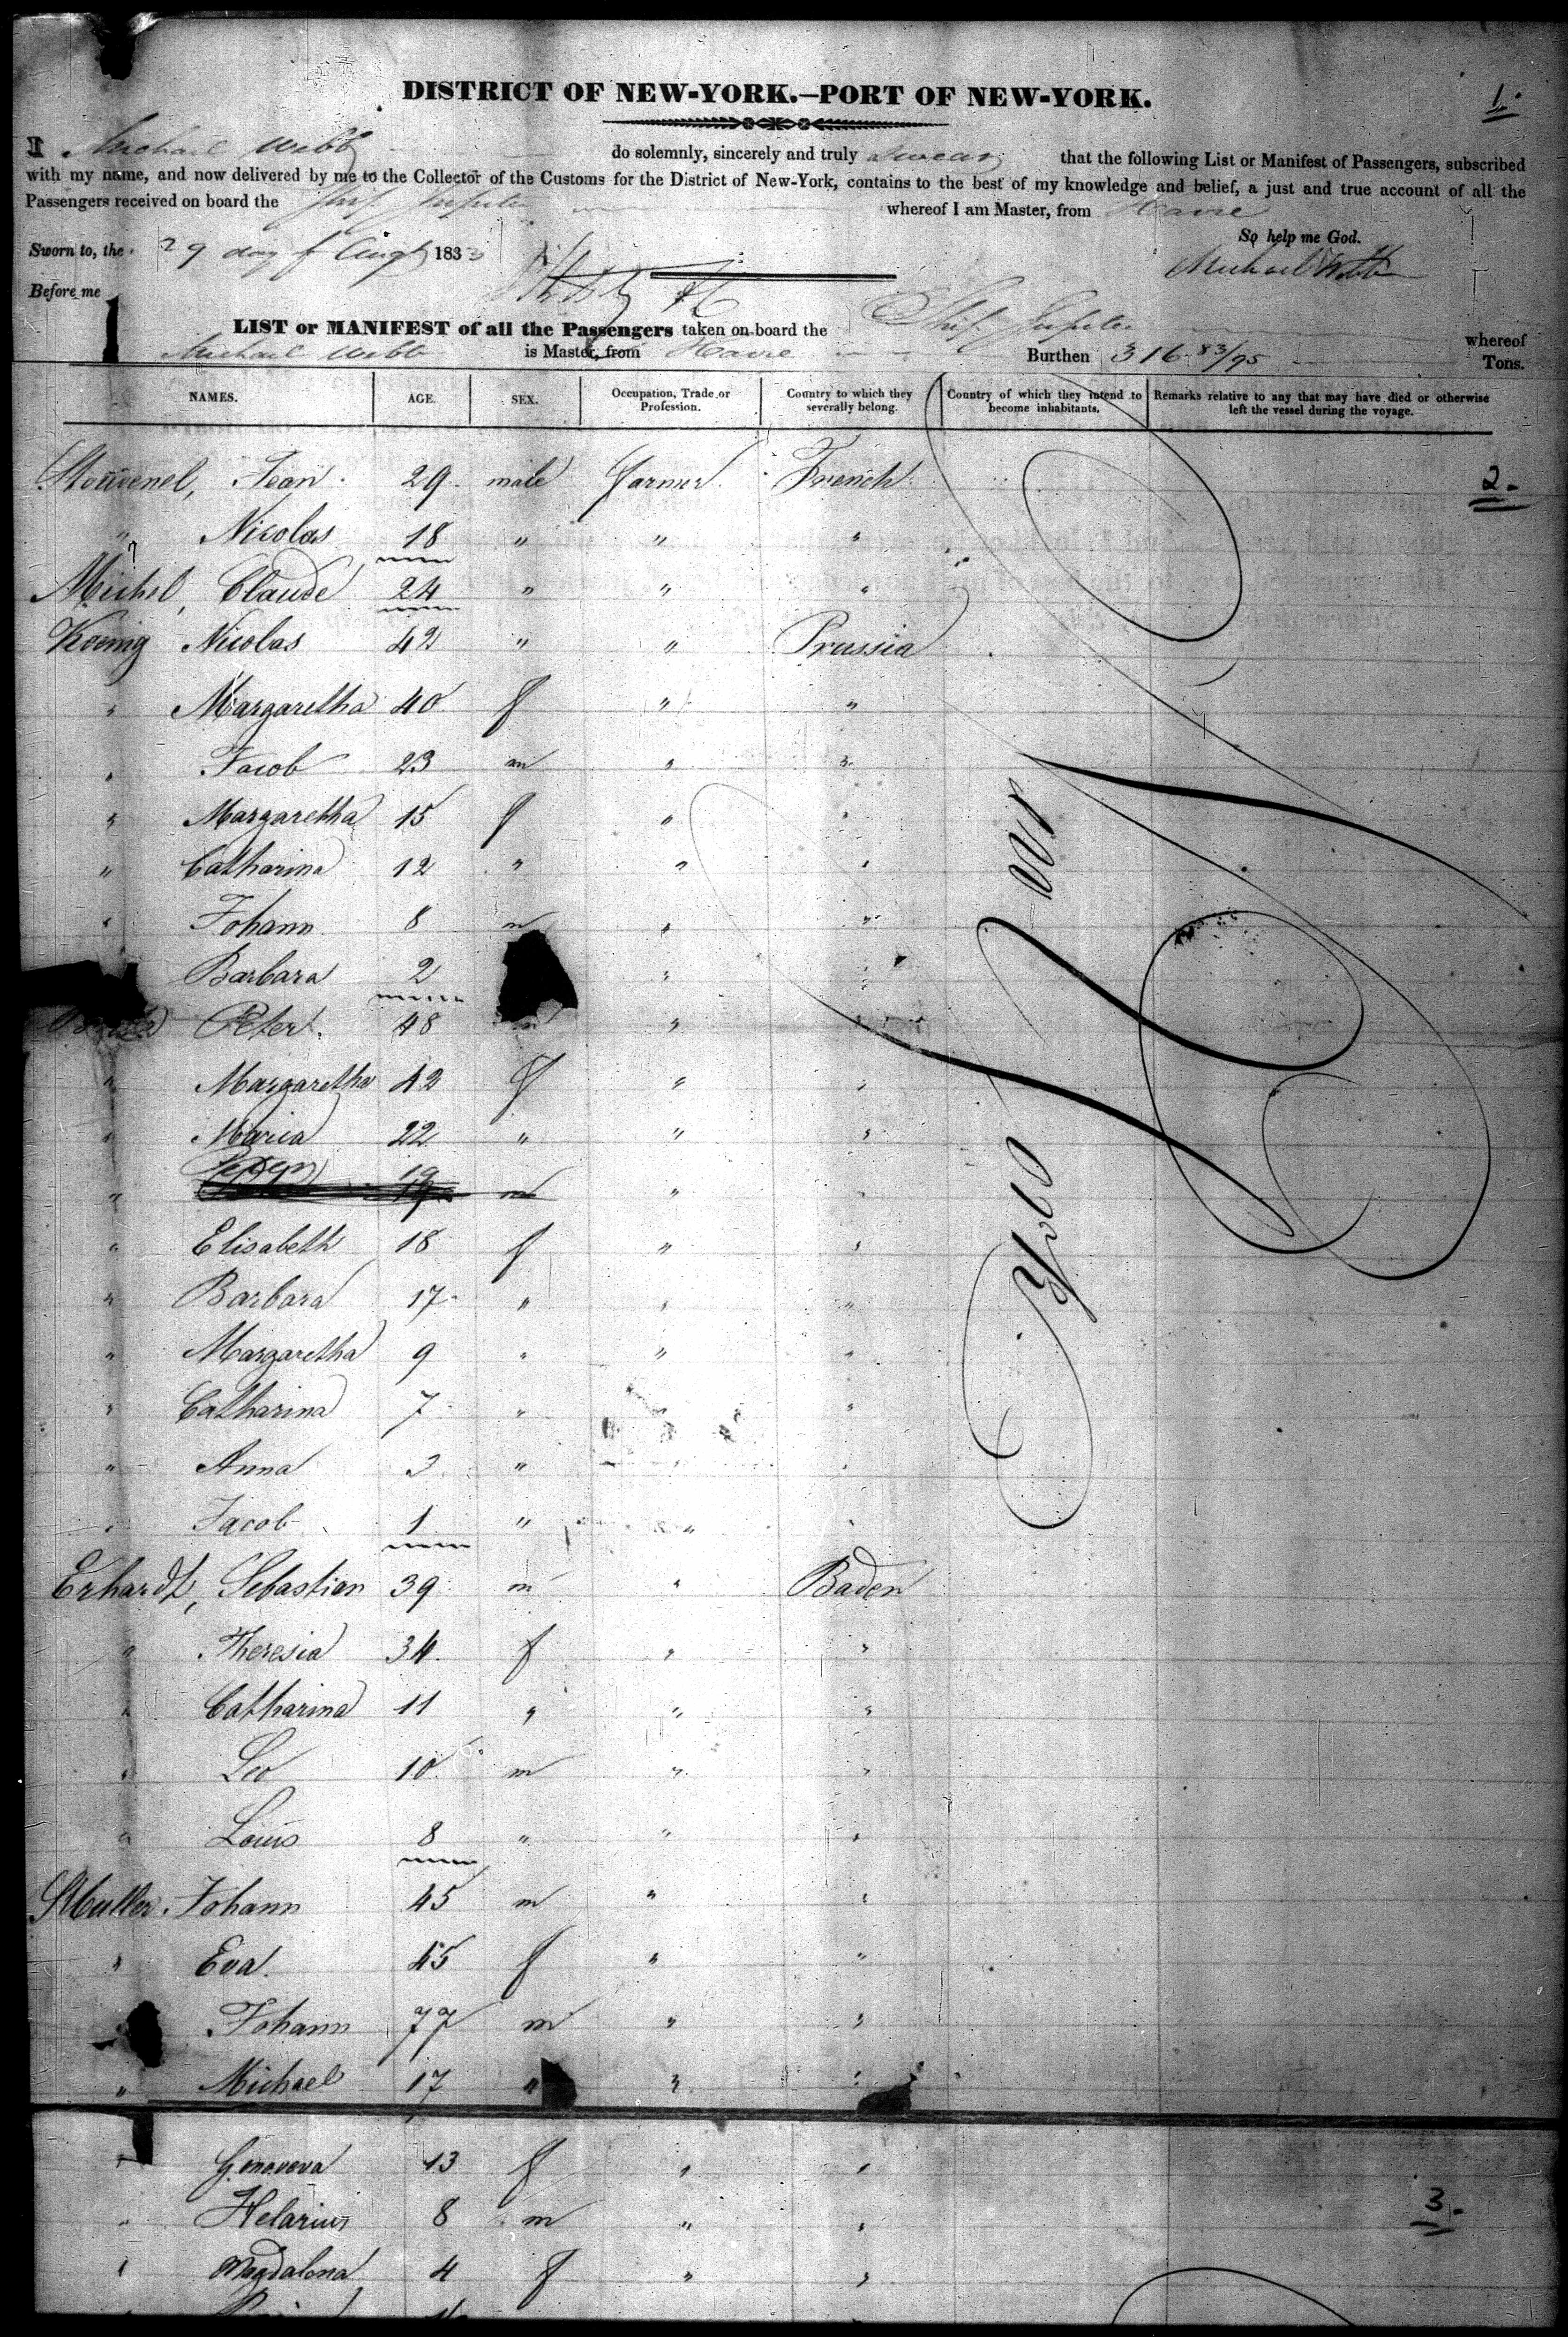 DISTRICT OF NEW-YORK.—PORT OF NEW-YORK.
1.
I Michael Webb do solemnly, sincerely and truly swear that the following List or Manifest of Passengers, subscribed
with my name, and now delivered by me to the Collector of the Customs for the District of New-York, contains to the best of my knowledge and belief, a just and true account of all the
Passengers received on board the Ship Jupiter whereof I am Master, from Havre
So help me God.
Sworn to, the 29 day of Augt 1833
Michael Webb
Before me
LIST or MANIFEST of all the Passengers taken on board the Ship Jupiter whereof
Michael Webb is Master, from Havre Burthen 316 83/95 Tons.
NAMES. AGE. SEX. Occupation, Trade or Profession. Country to which they severally belong. Country of which they intend to become inhabitants. Remarks relative to any that may have died or otherwise left the vessel during the voyage.
Stouvenel, Jean 29 male farmer French
2.
" Nicolas 18 " " "
Michel, Claude 24 " " "
Koenig Nicolas 42 " " Prussia
" Margaretha 40 f " "
" Jacob 23 m " "
" Margaretha 15 f " "
" Catharina 12 " " "
" Johann 8 m " "
Barbara 2 " "
Peter 48 m " "
" Margaretha 42 f " "
" Maria 22 " " "
" 19 m " "
" Elisabeth 18 f " "
" Barbara 17 " " "
" Margaretha 9 " " "
" Catharina 7 " "
" Anna 3 " " "
" Jacob 1 " " "
Erhardt, Sebastian 39 m " Baden
" Theresia 34 f " "
" Catharina 11 " " "
" Leo 10 m " "
" Louis 8 " " "
Muller Johann 45 m " "
" Eva 45 f " "
Johann 77 m " "
" Michael 17 " " "
" Genoveva 13 f " "
" Helarius 8 m " "
3.
" Magdalena 4 f " "